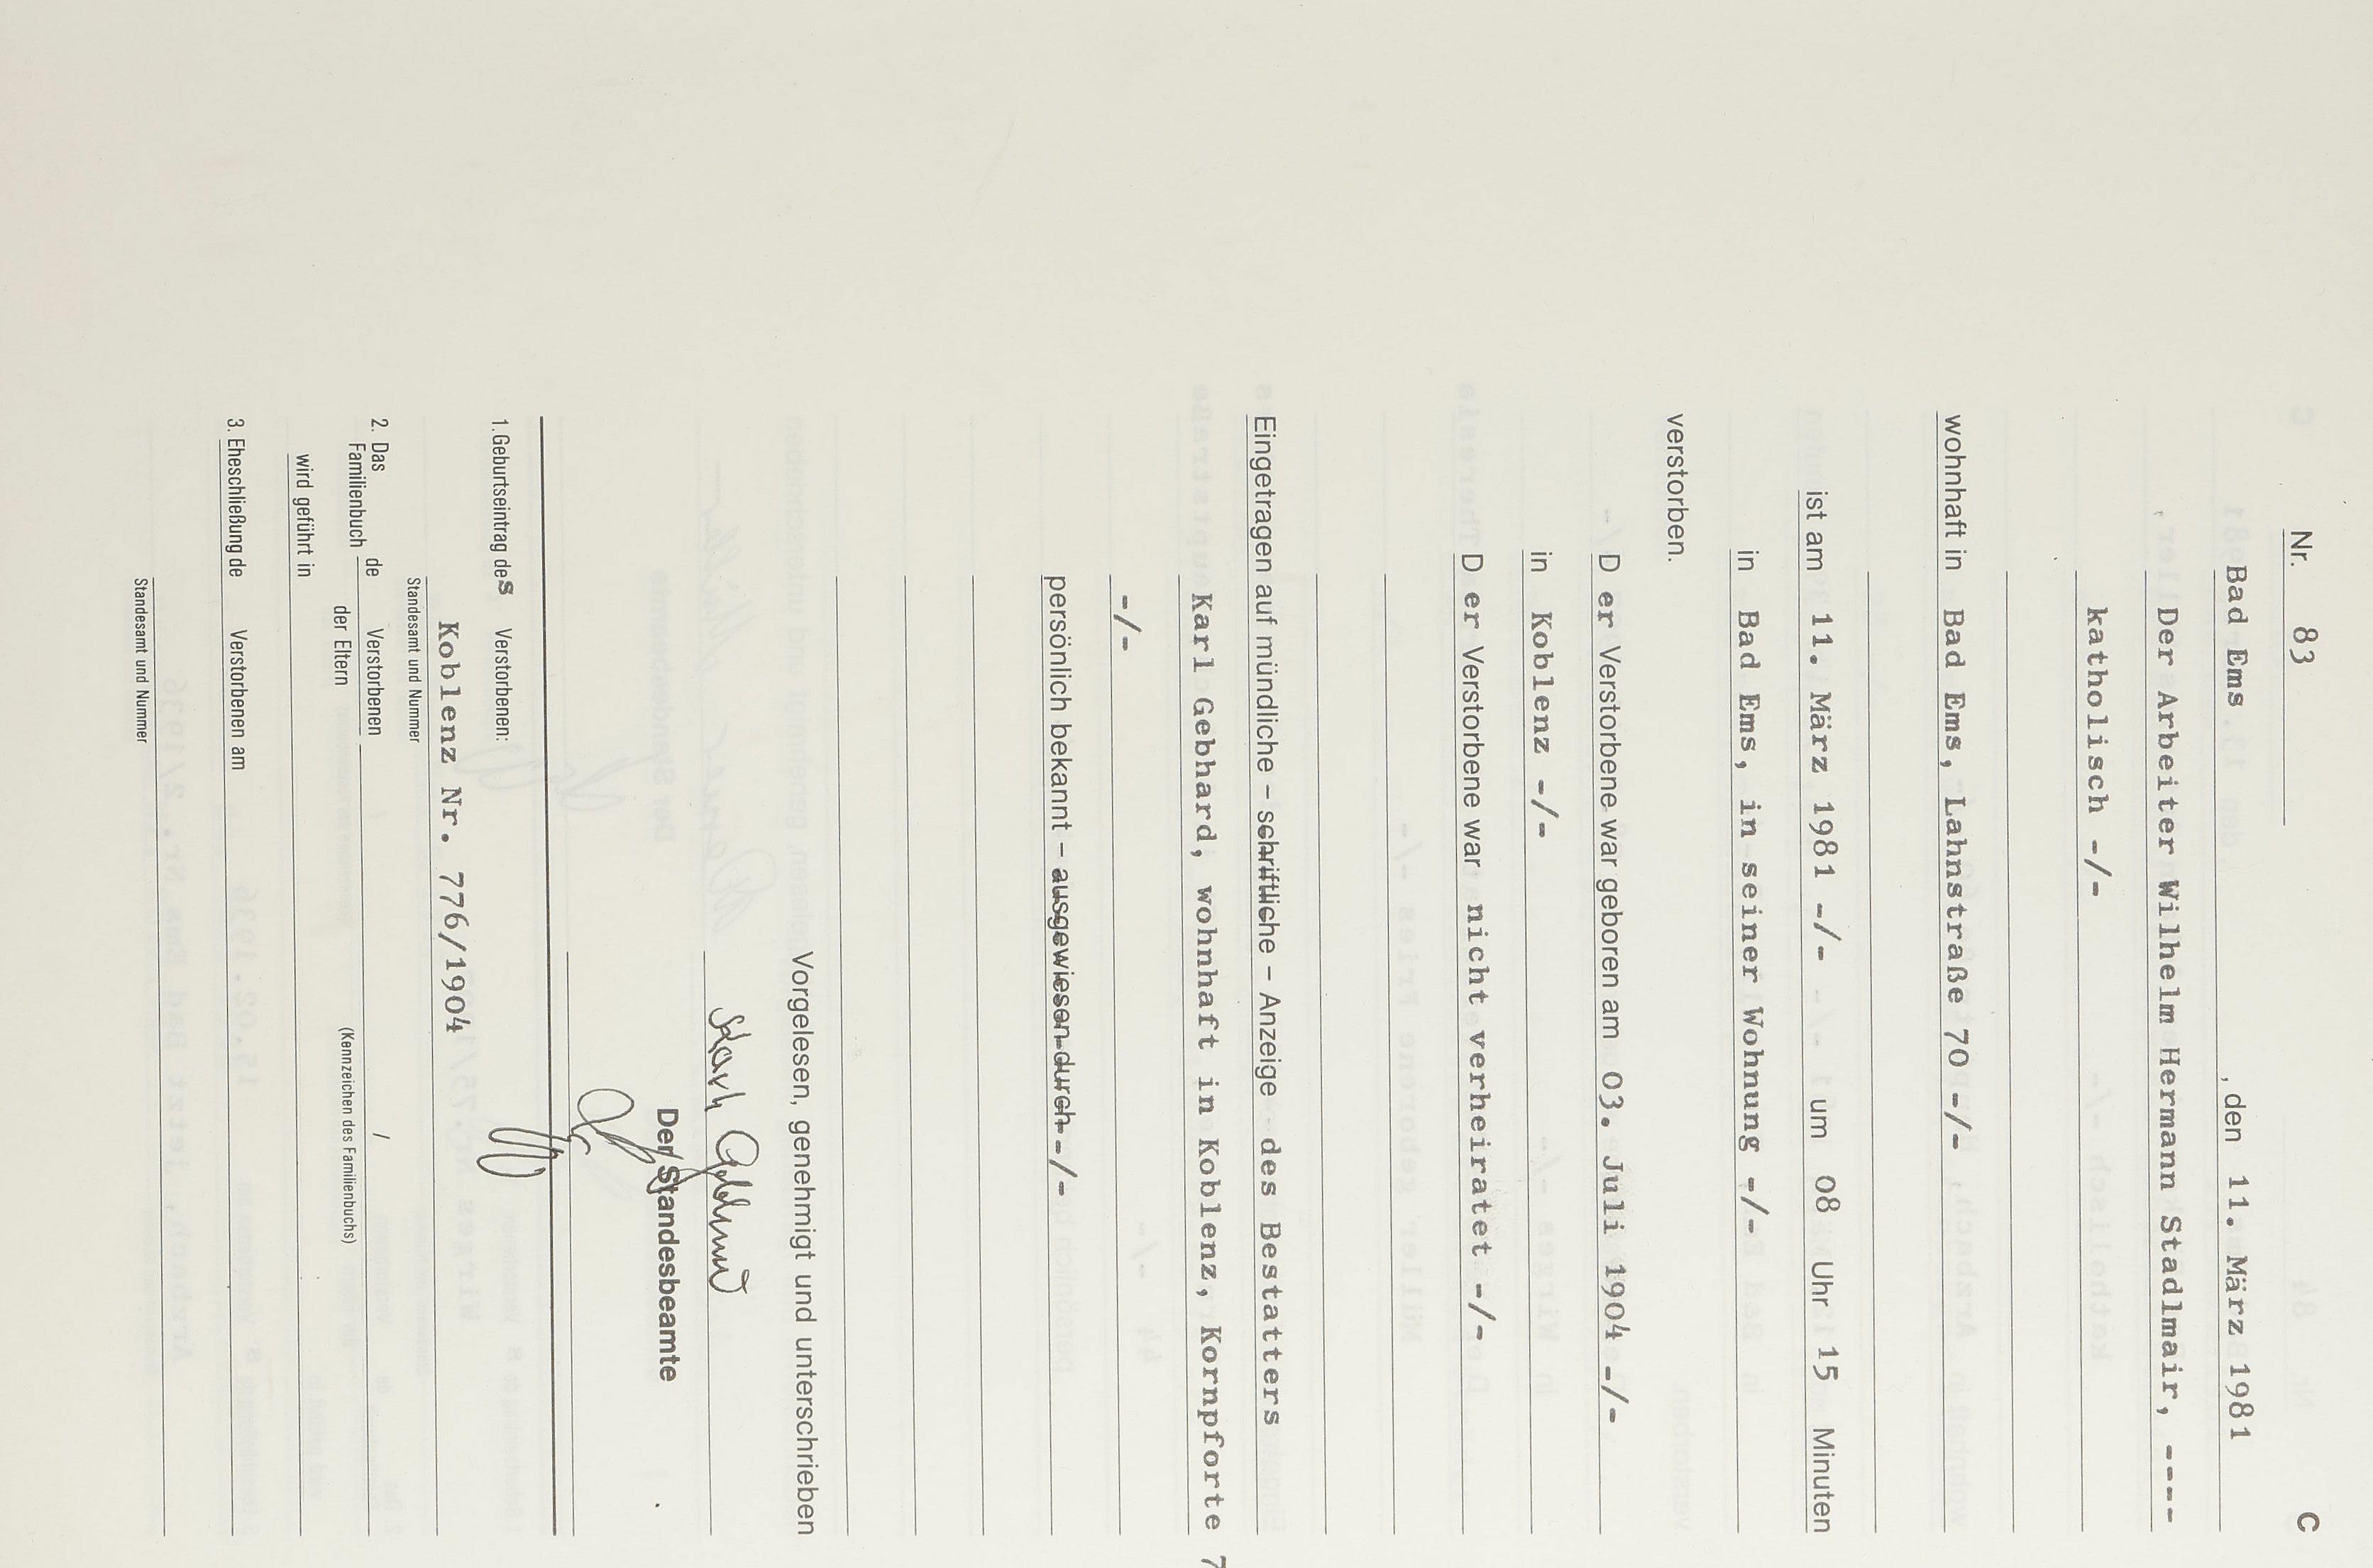 Nr. 83 C
Bad Ems, den 11. März 1981
Der Arbeiter Wilhelm Hermann Stadlmair, ----
katholisch -/-
wohnhaft in Bad Ems, Lahnstraße 70 -/-
ist am 11. März 1981 -/- um 08 Uhr 15 Minuten
in Bad Ems, in seiner Wohnung -/-
verstorben.
D er Verstorbene war geboren am 03. Juli 1904 -/-
in Koblenz -/-
D er Verstorbene war nicht verheiratet -/-
Eingetragen auf mündliche – schriftliche – Anzeige des Bestatters
Karl Gebhard, wohnhaft in Koblenz, Kornpforte 7
-/-
persönlich bekannt – ausgewiesen durch -/-
Vorgelesen, genehmigt und unterschrieben
Karl Gebhard
Der Standesbeamte
1. Geburtseintrag des Verstorbenen:
Koblenz Nr. 776/1904
Standesamt und Nummer
2. Das Familienbuch de Verstorbenen /
der Eltern (Kennzeichen des Familienbuchs)
wird geführt in
3. Eheschließung de Verstorbenen am
Standesamt und Nummer